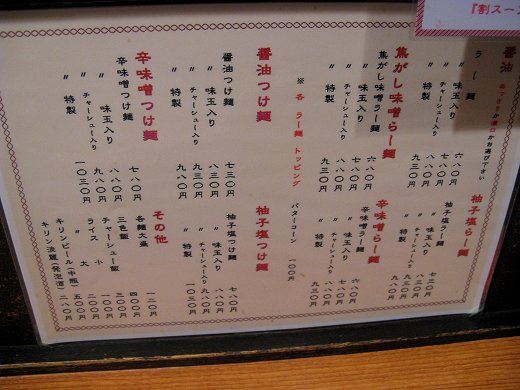 『割スープ
醤油
あっさりか濃口かお選び下さい
ラー麺
〃 味玉入り 六八〇円
〃 チャーシュー入り 八八〇円
〃 特製 九三〇円
焦がし味噌らー麺
焦がし味噌ラー麺 六八〇円
〃 味玉入り 七八〇円
〃 チャーシュー入り 八八〇円
〃 特製 九三〇円
※ 各 らー麺 トッピング
バターコーン 一〇〇円
柚子塩らー麺
柚子塩ラー麺 七三〇円
〃 味玉入り 八三〇円
〃 チャーシュー入り
〃 特製 九八〇円
辛味噌らー麺
辛味噌ラー麺 六八〇円
〃 味玉入り
〃 チャーシュー入り
〃 特製 九三〇円
醤油つけ麺
醤油つけ麺 七三〇円
〃 味玉入り 八三〇円
〃 チャーシュー入り 九三〇円
〃 特製 九八〇円
辛味噌つけ麺
辛味噌つけ麺 七八〇円
〃 味玉入り 八八〇円
〃 チャーシュー入り 九八〇円
〃 特製 一〇三〇円
柚子塩つけ麺
柚子塩つけ麺 七八〇円
〃 味玉入り 八八〇円
〃 チャーシュー入り 九八〇円
〃 特製 一〇三〇円
その他
各麺大盛 一二〇円
三色飯 四〇〇円
チャーシュー飯 三〇〇円
ライス 小 一〇〇円
〃 大 二〇〇円
キリンビール(中瓶) 五〇〇円
キリン淡麗(発泡酒) 二八〇円